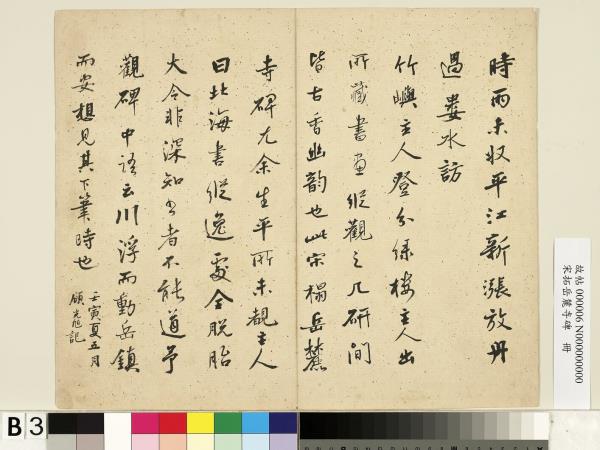 時雨未收平江新漲放舟
過婁水訪
竹嶼主人登分綠樓主人出
所藏書畫縱觀之几研間
皆古香幽韵也此宋榻岳麓
寺碑尤余生平所未覩主人
曰北海書縱逸處全脫胎
大令非深知書者不能道予
觀碑中語云川浮而動岳鎮
而安想見其下筆時也
壬寅夏五月
顧光旭記
故帖 000006 N000000000
宋拓岳麓寺碑 冊
B 3